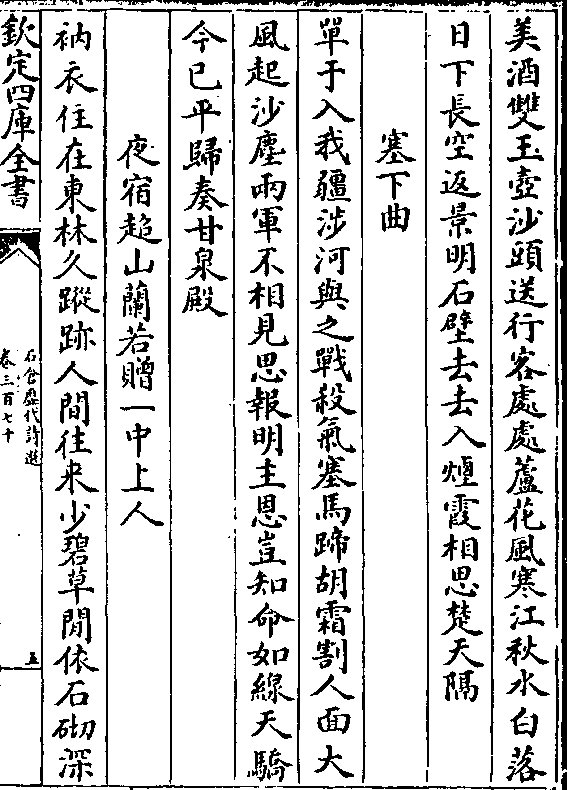 美酒雙玉壺沙頭送行客處處蘆花風寒江秋水白落
日下長空返景明石壁去去入煙霞相思楚天隔
塞下曲
單于入我疆涉河與之戰殺氣塞馬蹄胡霜割人面大
風起沙塵兩軍不相見思報明主恩豈知命如線天驕
今已平歸奏甘泉殿
夜宿超山蘭若贈一中上人
衲衣住在東林久蹤跡人間往来少碧草閒依石砌深
欽定四庫全書
石倉歷代詩選
卷三百七十
五